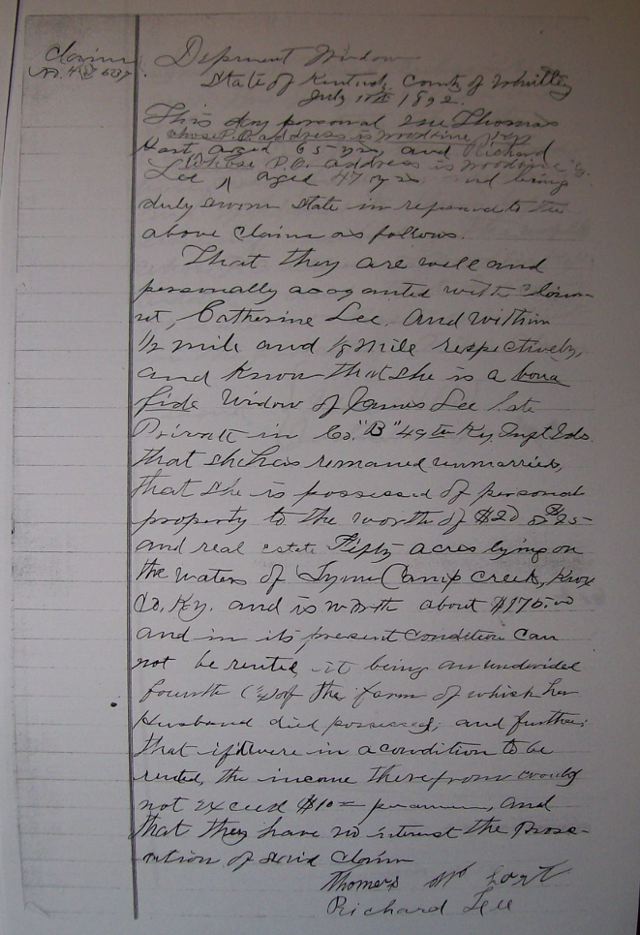 Claim
No. 4
Depenent Widow
State of Kentucky County of Whitley
July 11th 1892.
This day personal Thomas
whose P.O. address is Woodbine Ky
Hart, aged 65 yrs, and Richard
whose P.O. address is Woodbine Ky.
Lee ^ aged 47 yrs and being
duly sworn state in reguard to the
above claim as follows.
That they are well and
personally acoqanted with Claim-
nt, Catherine Lee. and within
1/2 mile and 1/8 mile respectively,
and know that she is a bona
fide Widow of James Lee late
Private in Co. "B" 49th Ky. Inft Vols.
that she has remaned unmarried,
that she is possessed of personal
property to the worth of $20 $25
and real estate Fifty acres lying on
the waters of Lynn Camp creek, Knox
Co. Ky. and is worth about $175.00
and in its present condition can
not be rented, it being an undivided
fourth (1/4) of the farm of which her
Husband died possessed, and further
that if it were in a condition to be
rented, the income therefrom would
not exceed $10 per annum, and
that they have no interest the Prose-
cution of said claim
Thomas Hart
Richard Lee